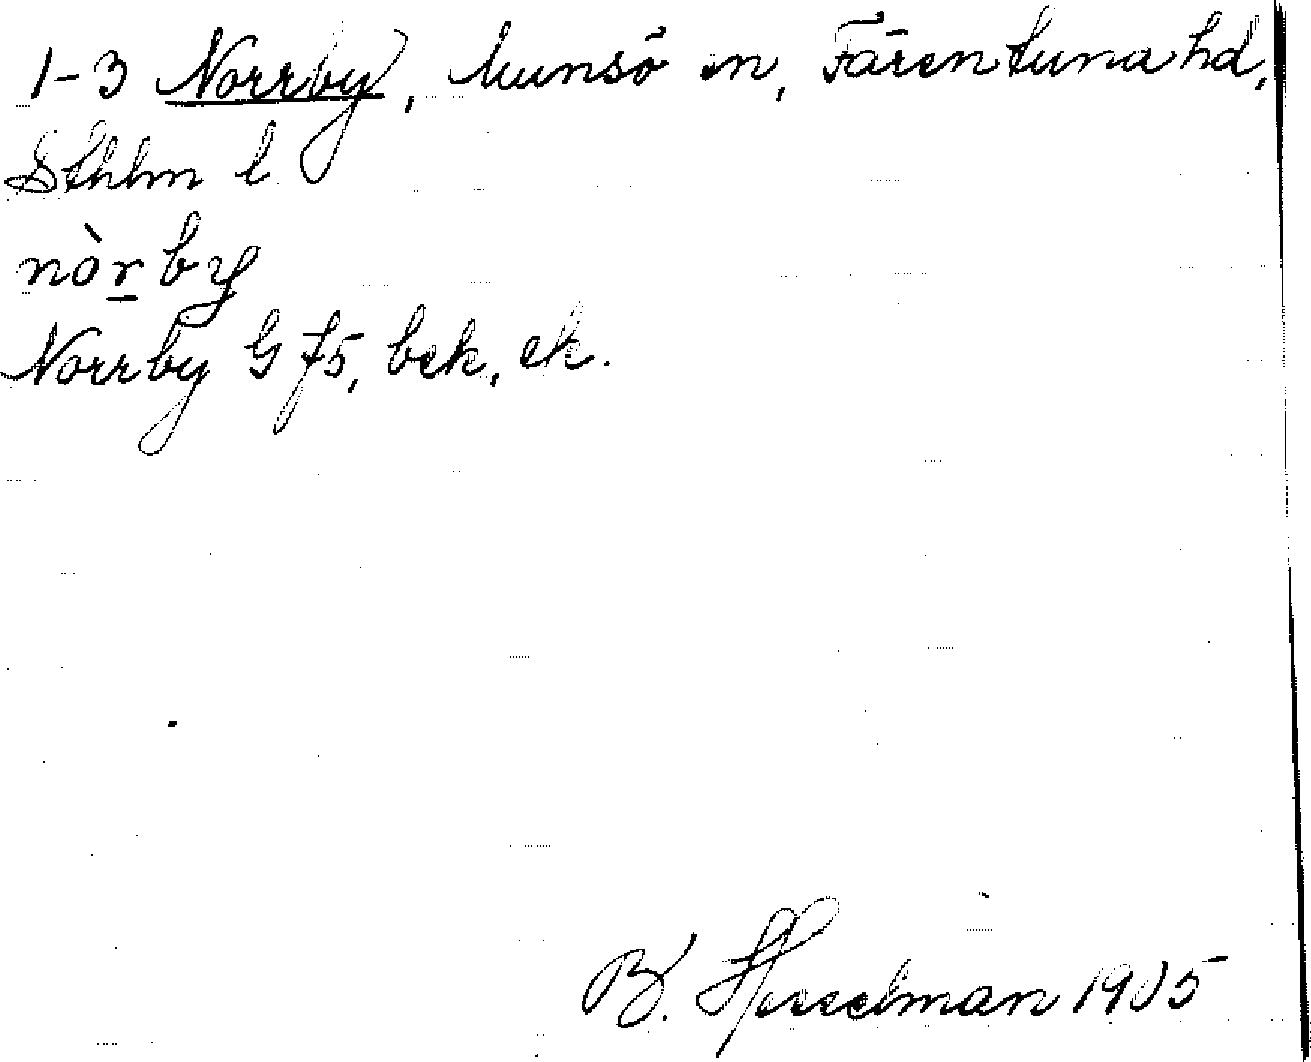 1-3 Norrby, Munsö sn, Färentuna hd,
Sthlm l
nòrby
Norrby G f5, bek, ek.
B. Hesselman 1905